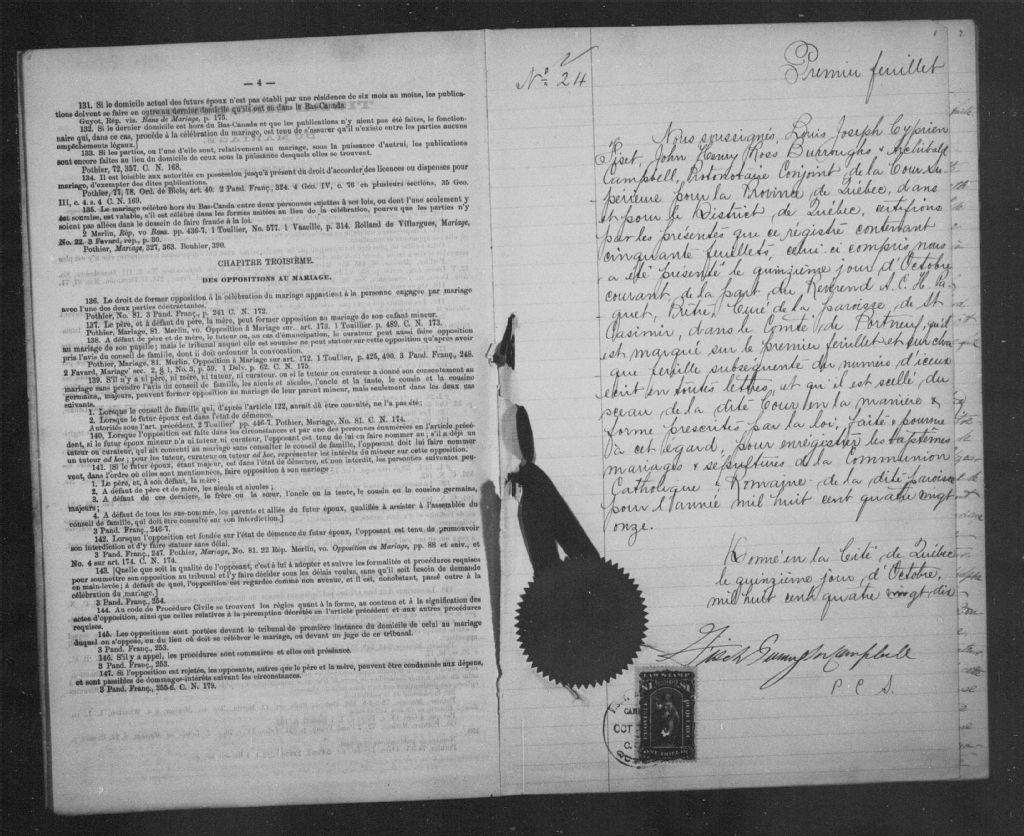 — 4 —
131. Si le domicile actuel des futurs époux n'est pas établi par une résidence de six mois au moins, les publica-
tions doivent se faire en outre au dernier domicile qu'ils ont eu dans le Bas-Canada.
Guyot, Rép. vis. Bans de Mariage, p. 175.
132. Si le dernier domicile est hors du Bas-Canada et que les publications n'y aient pas été faites, le fonction-
naire qui, dans ce cas, procède à la célébration du mariage, est tenu de s'assurer qu'il n'existe entre les parties aucuns
empêchements légaux.]
133. Si les parties, ou l'une d'elle, sont, relativement au mariage, sous la puissance d'autrui, les publications
sont encore faites au lieu du domicile de ceux sous la puissance desquels elles se trouvent.
Pothier, 72, 357. C. N. 168.
134. Il est loisible aux autorités en possession jusqu'à présent du droit d'accorder des licences ou dispenses pour
mariage, d'exempter des dites publications.
Pothier, 77, 78. Ord. de Blois, art. 40. 2 Pand. Franç., 324. 4 Géo. IV, c. 76 en plusieurs sections, 35 Geo.
III, c. 4. s. 4 C. N. 169.
135. Le mariage célébré hors du Bas-Canada entre deux personnes sujettes à ses lois, ou dont l'une seulement y
est soumise, est valable, s'il est célébré dans les formes usitées au lieu de la célébration, pourvu que les parties n'y
soient pas allées dans le dessein de faire fraude à la loi.
2 Merlin, Rép, vo Bans. pp. 436-7. 1 Toullier, No. 577. 1 Vazeille, p. 314. Rolland de Villargues, Mariage,
No. 22. 3 Favard, rép., p. 30.
Pothier, Mariage, 327, 363. Bouhier, 390.
CHAPITRE TROISIÈME.
DES OPPOSITIONS AU MARIAGE.
136. Le droit de former opposition à la célébration du mariage appartient à la personne engagée par mariage
avec l'une des deux parties contractantes.
Pothier, No. 81. 3 Pand. Franç., p. 241 C. N. 172.
137. Le père, et à défaut du père, la mère, peut former opposition au mariage de son enfant mineur.
Pothier, Mariage, 81. Merlin, vo. Opposition à Mariage sur. art. 173. 1 Toullier, p. 489. C. N. 173.
138. A défaut de père et de mère, le tuteur ou, au cas d'émancipation, le curateur peut aussi faire opposition
au mariage de son pupille; mais le tribunal auquel elle est soumise ne peut statuer sur cette opposition qu'après avoir
pris l'avis du conseil de famille, dont il doit ordonner la convocation.
Pothier, Mariage, 81. Merlin, Opposition à Mariage sur art. 172. 1 Toullier, p. 425, 490. 3 Pand. Franç., 248.
2 Favard, Mariage sec. 2, § 1, No. 3, p. 59. 1 Delv. p. 62. C. N. 175.
139. S'il n'y a ni père, ni mère, ni tuteur, ni curateur, ou si le tuteur ou curateur a donné son consentement au
mariage sans prendre l'avis du conseil de famille, les aïeuls et aïeules, l'oncle et la tante, le cousin et la cousine
germains, majeurs, peuvent former opposition au mariage de leur parent mineur, mais seulement dans les deux cas
suivants.
1. Lorsque le conseil de famille qui, d'après l'article 122, aurait dû être consulté, ne l'a pas été;
2. Lorsque le futur époux est dans l'état de démence.
Autorités sous l'art. précédent. 2 Toullier pp. 446-7. Pothier, Mariage, No. 81. C. N. 174.
140. Lorsque l'opposition est faite dans les circonstances et par une des personnes énoncées en l'article précé-
dent, si le futur époux mineur n'a ni tuteur ni curateur, l'opposant est tenu de lui en faire nommer un; s'il a déjà un
tuteur ou curateur, qui ait consenti au mariage sans consulter le conseil de famille, l'opposant doit lui faire nommer
un tuteur ad hoc; pour les tuteur, curateur ou tuteur ad hoc, représenter les intérêts du mineur sur cette opposition.
141. [Si le futur époux, étant majeur, est dans l'état de démence, et non interdit, les personnes suivantes peu-
vent, dans l'ordre où elles sont mentionnées, faire opposition à son mariage:
1. Le père, et, à son défaut, la mère;
2. A défaut de père et de mère, les aïeuls et aïeules;
3. A défaut de ces derniers, le frère ou la sœur, l'oncle ou la tante, le cousin ou la cousine germains,
majeurs;
4. A défaut de tous les sus-nommés, les parents et alliés du futur époux, qualifiés à assister à l'assemblée du
conseil de famille, qui doit être consulté sur son interdiction.]
3 Pand. Franç., 246-7.
142. Lorsque l'opposition est fondée sur l'état de démence du futur époux, l'opposant est tenu de promouvoir
son interdiction et d'y faire statuer sans délai.
3 Pand. Franç., 247. Pothier, Mariage, No. 81. 22 Rép. Merlin, vo. Opposition au Mariage, pp. 88 et suiv., et
No. 4 sur art. 174. C. N. 174.
143. [Quelle que soit la qualité de l'opposant, c'est à lui à adopter et suivre les formalités et procédures requises
pour soumettre son opposition au tribunal et l'y faire décider sous les délais voulus, sans qu'il soit besoin de demande
en main-levée; à défaut de quoi, l'opposition est regardée comme non avenue, et il est, nonobstant, passé outre à la
célébration du mariage.]
3 Pand. Franç., 254.
144. Au code de Procédure Civile se trouvent les règles quant à la forme, au contenu et à la signification des
actes d'opposition, ainsi que celles relatives à la péremption décrétée en l'article précédent et aux autres procédures
requises.
145. Les oppositions sont portées devant le tribunal de première instance du domicile de celui au mariage
duquel on s'oppose, ou du lieu où doit se célébrer le mariage, ou devant un juge de ce tribunal.
3 Pand. Franç., 253.
146. S'il y a appel, les procédures sont sommaires et elles ont préséance.
3 Pand. Franç., 253.
147. Si l'opposition est rejetée, les opposants, autres que le père et la mère, peuvent être condamnés aux dépens,
et sont passibles de dommages-intérêts suivant les circonstances.
3 Pand. Franç., 255-6. C. N. 179.
No. 24
Premier feuillet
Nous soussignés, Louis Joseph Cyprien
Fiset, John Henry Ross Burroughs & Archibald
Campbell, Protonotaire Conjoint de la Cour Su-
périeure pour la Province de Québec, dans
et pour le District de Québec, certifions
par les présentes que ce régistre contenant
cinquante feuillets, celui ci compris, nous
a été présenté le quinzième jour d'Octobre
courant, de la part du Révérend A. E. 
guet, Prêtre, Curé de la paroisse de St
Casimir, dans le Comté de Portneuf, qu'il
est marqué sur le premier feuillet et sur cha
que feuille subséquente du numéro d'iceux
écrit en toutes lettres, et qu'il est scellé du
sceau de la dite Cour en la manière &
forme prescrites par la loi, faite & pourvue
à cet égard, pour enregistrer les baptêmes
mariages & sépultures de la Communion
Catholique & Romaine de la dite paroisse
pour l'année mil huit cent quatre vingt
onze.
Donné en la Cité de Québec
le quinzième jour d'Octobre,
mil huit cent quatre vingt dix
Fiset Burroughs Campbell
P. C. S.
LAW STAMP
$1 $1
PROVINCE QUEBEC
ONE DOLLAR
OCT